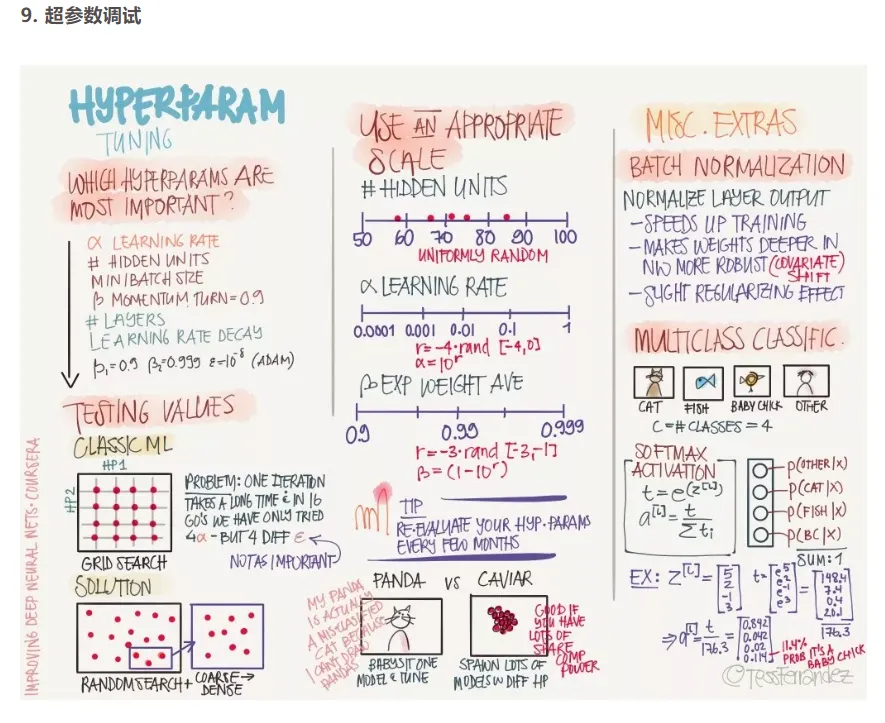 9. 超参数调试
HYPERPARAM
TUNING
WHICH HYPERPARAMS ARE
MOST IMPORTANT?
α LEARNING RATE
# HIDDEN UNITS
MINIBATCH SIZE
β MOMENTUM TURN=0.9
# LAYERS
LEARNING RATE DECAY
β₁=0.9 β₂=0.999 ε=10⁻⁸ (ADAM)
TESTING VALUES
CLASSIC ML
HP1
HP2
GRID SEARCH
PROBLEM: ONE ITERATION
TAKES A LONG TIME & IN 16
GO'S WE HAVE ONLY TRIED
4α - BUT 4 DIFF ε
NOT AS IMPORTANT
SOLUTION
RANDOM SEARCH + COARSE→
DENSE
IMPROVING DEEP NEURAL NETS · COURSERA
USE AN APPROPRIATE
SCALE
# HIDDEN UNITS
50 60 70 80 90 100
UNIFORMLY RANDOM
α LEARNING RATE
0.0001 0.001 0.01 0.1 1
r=-4·rand [-4,0]
α=10ʳ
β EXP WEIGHT AVE
0.9 0.99 0.999
r=-3·rand [-3,-1]
β=(1-10ʳ)
TIP
RE-EVALUATE YOUR HYP.PARAMS
EVERY FEW MONTHS
PANDA VS CAVIAR
MY PANDA
IS ACTUALLY
A MISCLASSIFIED
CAT BECAUSE
I CAN'T DRAW
PANDAS
BABYSIT ONE
MODEL & TUNE
SPAWN LOTS OF
MODELS W DIFF HP
GOOD IF
YOU HAVE
LOTS OF
SHARE
COMP
POWER
MISC. EXTRAS
BATCH NORMALIZATION
NORMALIZE LAYER OUTPUT
-SPEEDS UP TRAINING
-MAKES WEIGHTS DEEPER IN
NW MORE ROBUST (COVARIATE)
SHIFT
-SLIGHT REGULARIZING EFFECT
MULTICLASS CLASSIFIC.
CAT FISH BABY CHICK OTHER
C=# CLASSES = 4
SOFTMAX
ACTIVATION
t=e^(z^[L])
a^[L]=t/Σti
P(OTHER|X)
P(CAT|X)
P(FISH|X)
P(BC|X)
SUM:1
EX: Z^[L]=[5 2 -1 3] t=[e⁵ e² e⁻¹ e³]=[148.4 7.4 0.4 20.1]
176.3
⇒a^[L]=t/176.3=[0.842 0.042 0.02 0.114]
11.4%
PROB IT'S A
BABY CHICK
©TessFerrandez